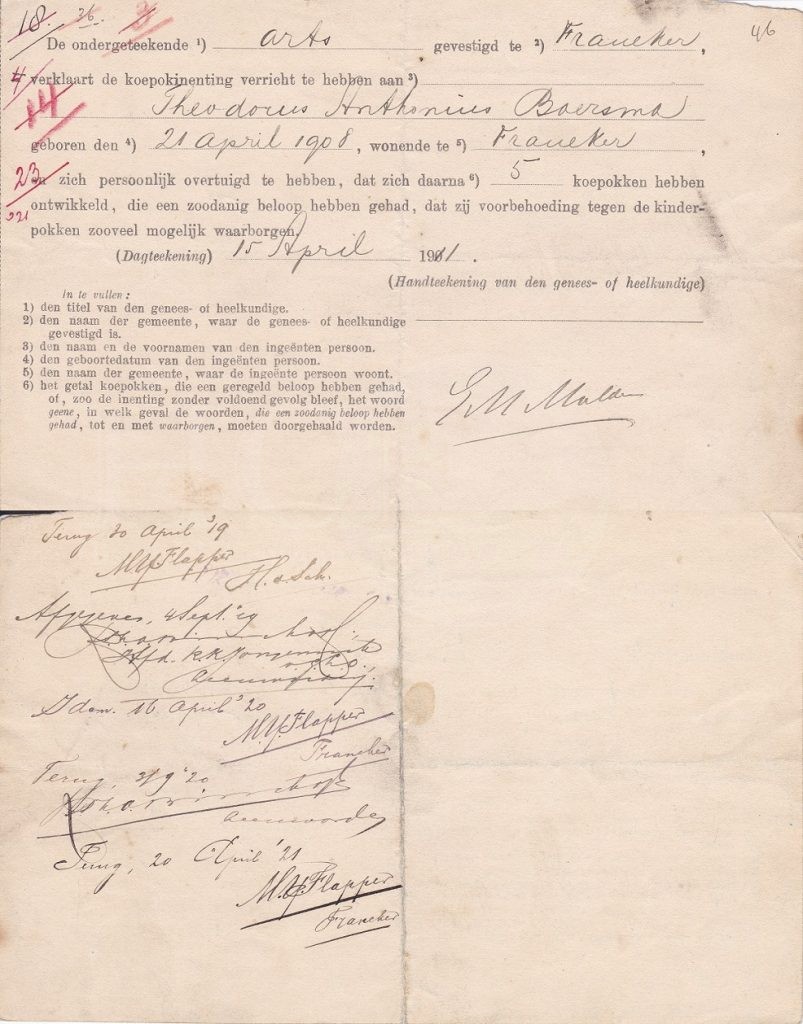 18. 26. 3
46
De ondergeteekende 1) arts gevestigd te 2) Franeker,
4 verklaart de koepokinenting verricht te hebben aan 3)
14 Theodorus Anthonius Boersma
geboren den 4) 21 april 1908, wonende te 5) Franeker,
23 en zich persoonlijk overtuigd te hebben, dat zich daarna 6) 5 koepokken hebben
221 ontwikkeld, die een zoodanig beloop hebben gehad, dat zij voorbehoeding tegen de kinder-
pokken zooveel mogelijk waarborgen.
(Dagteekening) 15 April 1911.
(Handteekening van den genees- of heelkundige)
In te vullen:
1) den titel van den genees- of heelkundige.
2) den naam der gemeente, waar de genees- of heelkundige
gevestigd is.
3) den naam en de voornamen van den ingeënten persoon.
4) den geboortedatum van den ingeënten persoon.
5) den naam der gemeente, waar de ingeënte persoon woont.
6) het getal koepokken, die een geregeld beloop hebben gehad,
of, zoo de inenting zonder voldoend gevolg bleef, het woord
geene, in welk geval de woorden, die een zoodanig beloop hebben
gehad, tot en met waarborgen, moeten doorgehaald worden.
Mulder
Terug 30 April '19
Flapper
H. d. Sch.
Afgegeven, 4 Sept. '19
Hfd.
Idem. 16 April '20
Flapper
Franeker
Terug, '20
Leeuwarden
Terug, 20 April '21
Flapper
Franeker